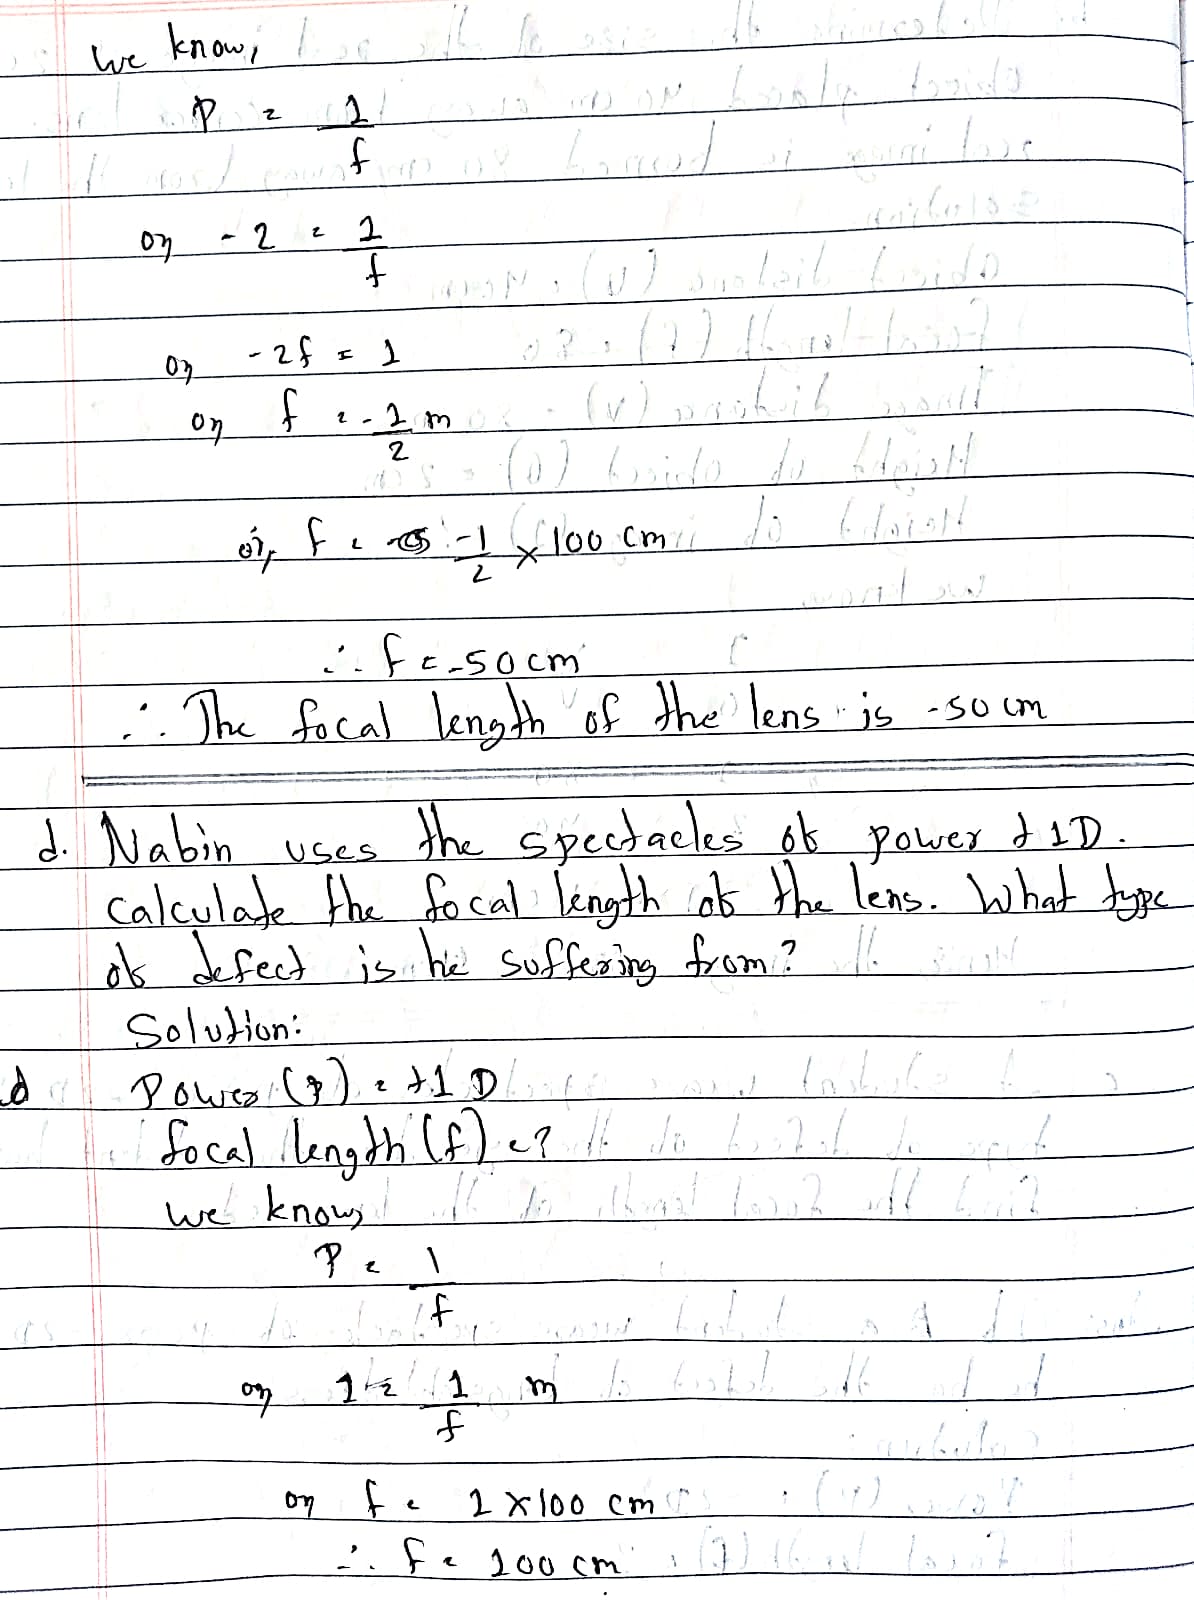 We know,
P = 1/f
or, -2 = 1/f
or, -2f = 1
or, f = -1/2 m
or, f = -1/2 × 100 cm
∴ f = -50 cm
∴ The focal length of the lens is -50 cm
d. Nabin uses the spectacles of power +1D.
Calculate the focal length of the lens. What type
of defect is he suffering from?
Solution:
Power (P) = +1 D
focal length (f) = ?
We know,
P = 1/f
or, 1 = 1/f m
or, f = 1 × 100 cm
∴ f = 100 cm